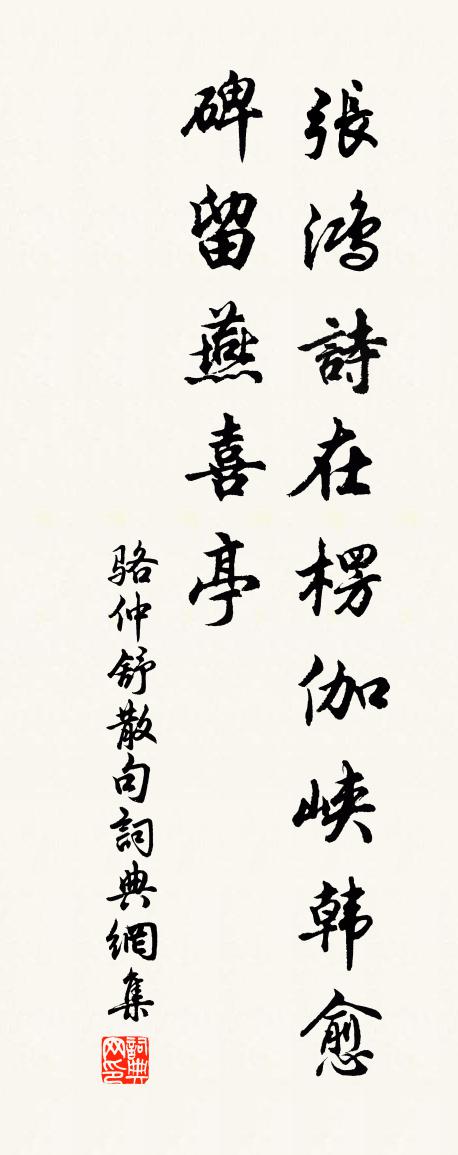 張鴻詩在楞伽峽韩愈
碑留燕喜亭
骆仲舒散句詞典網集
詞典网印